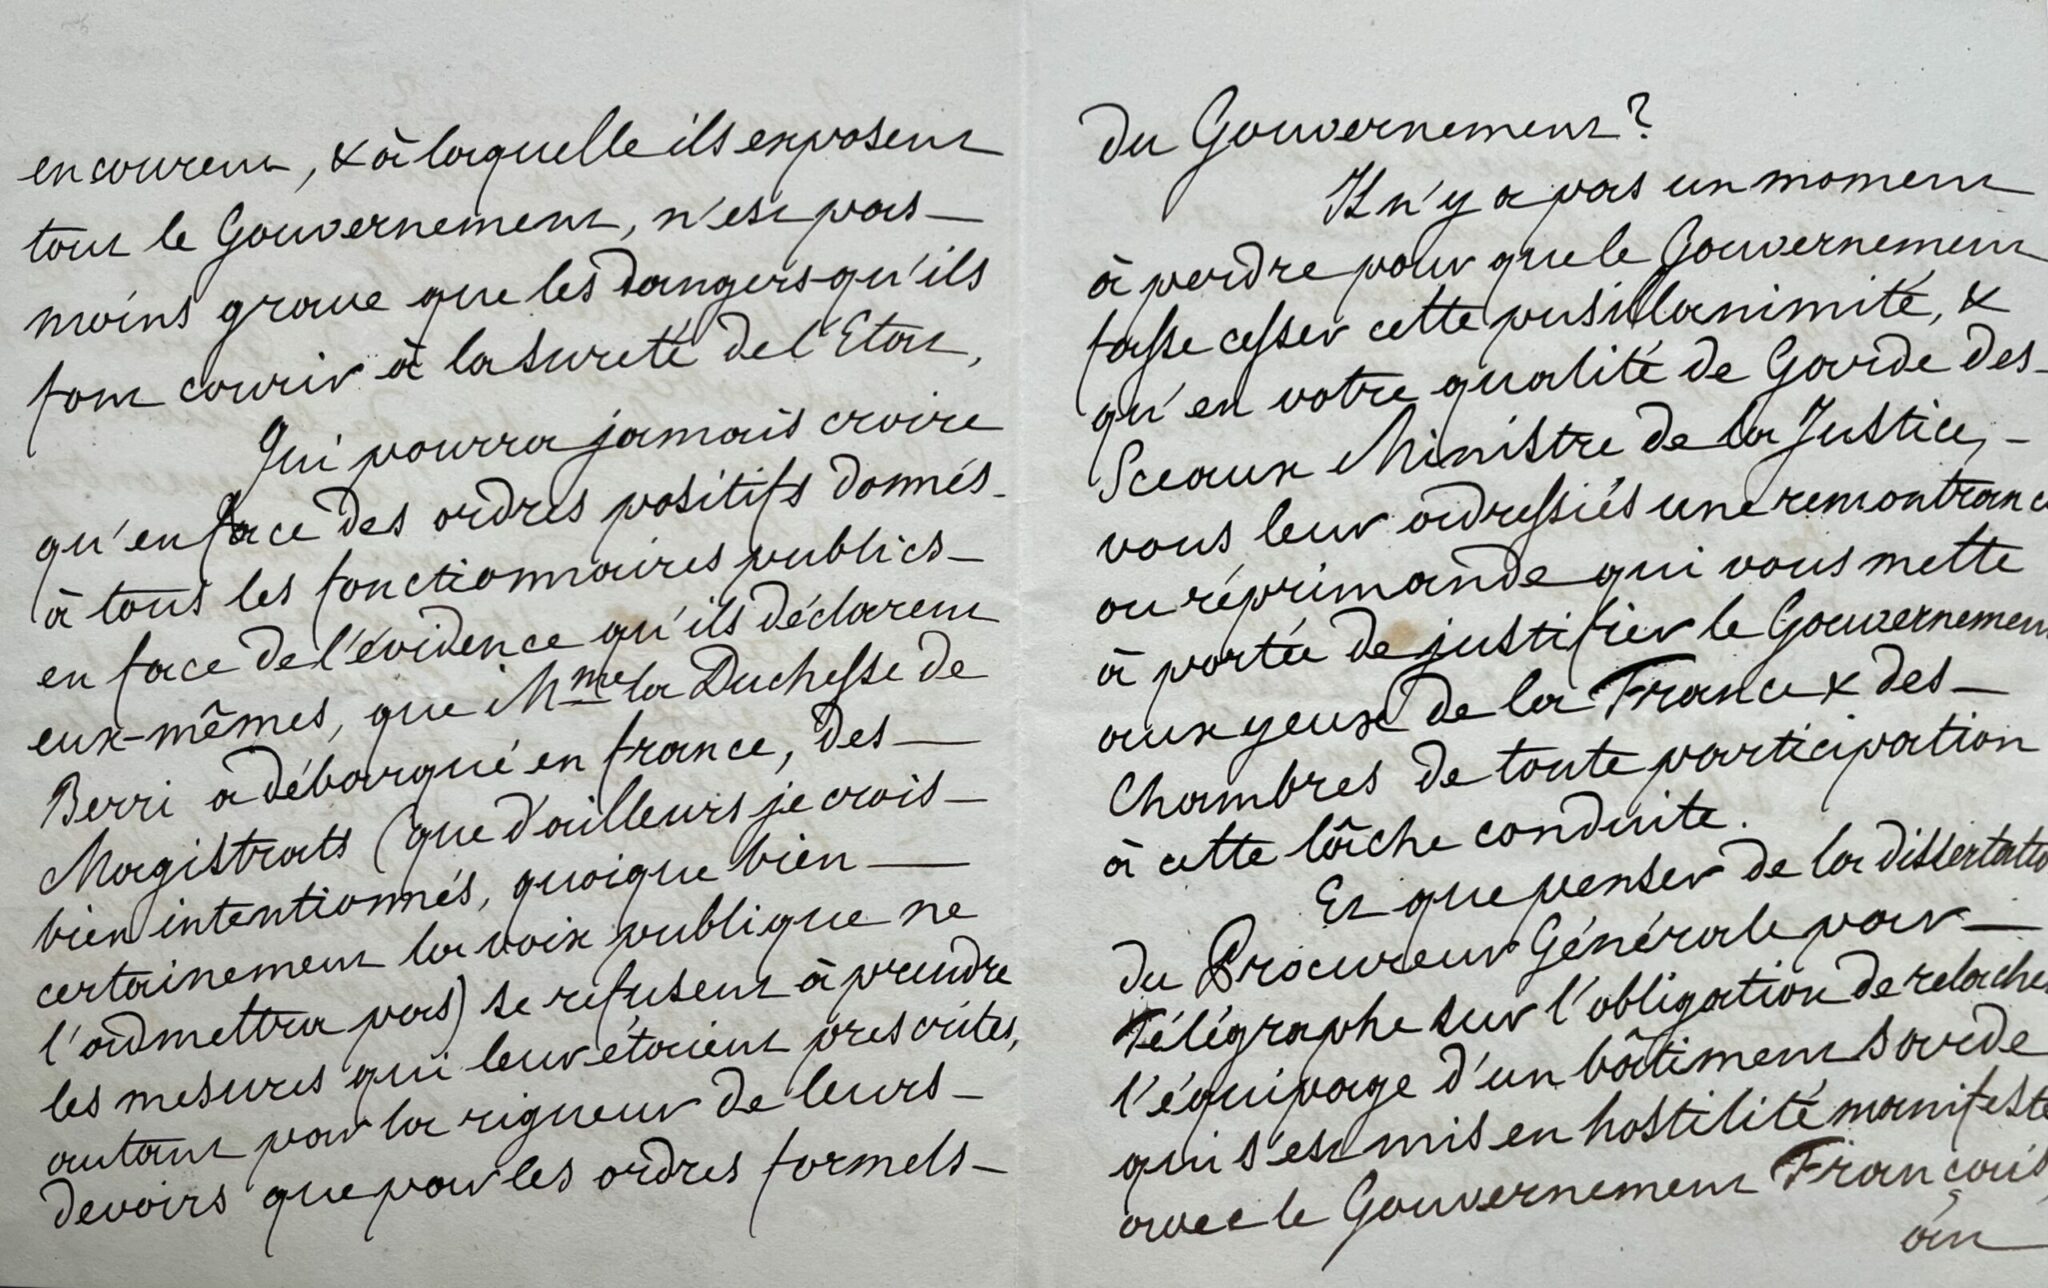 encourent, & à laquelle ils exposent
tout le Gouvernement, n'est pas
moins grave que les dangers qu'ils
font courir à la sureté de l'Etat,
Qui pourra jamais croire
qu'en face des ordres positifs donnés
à tous les fonctionnaires publics
en face de l'évidence qu'ils déclarent
eux-mêmes, que Mme la Duchesse de
Berri a débarqué en france, des
Magistrats (que d'ailleurs je crois
bien intentionnés, quoique bien
certainement la voix publique ne
l'admettra pas) se refusent à prendre
les mesures qui leur étaient prescrites,
autant par la rigueur de leurs
devoirs que par les ordres formels
du Gouvernement?
Il n'y a pas un moment
à perdre pour que le Gouvernement
fasse cesser cette pusillanimité, &
qu'en votre qualité de Garde des
Sceaux Ministre de la Justice,
vous leur adressiés une remontrance
ou réprimande qui vous mette
à portée de justifier le Gouvernement
aux yeux de la France & des
Chambres de toute participation
à cette lâche conduite.
Et que penser de la dissertatio
du Procureur Générale par
Télégraphe sur l'obligation de relacher
l'équipage d'un bâtiment sarde
qui s'est mis en hostilité manifeste
avec le Gouvernement Français,